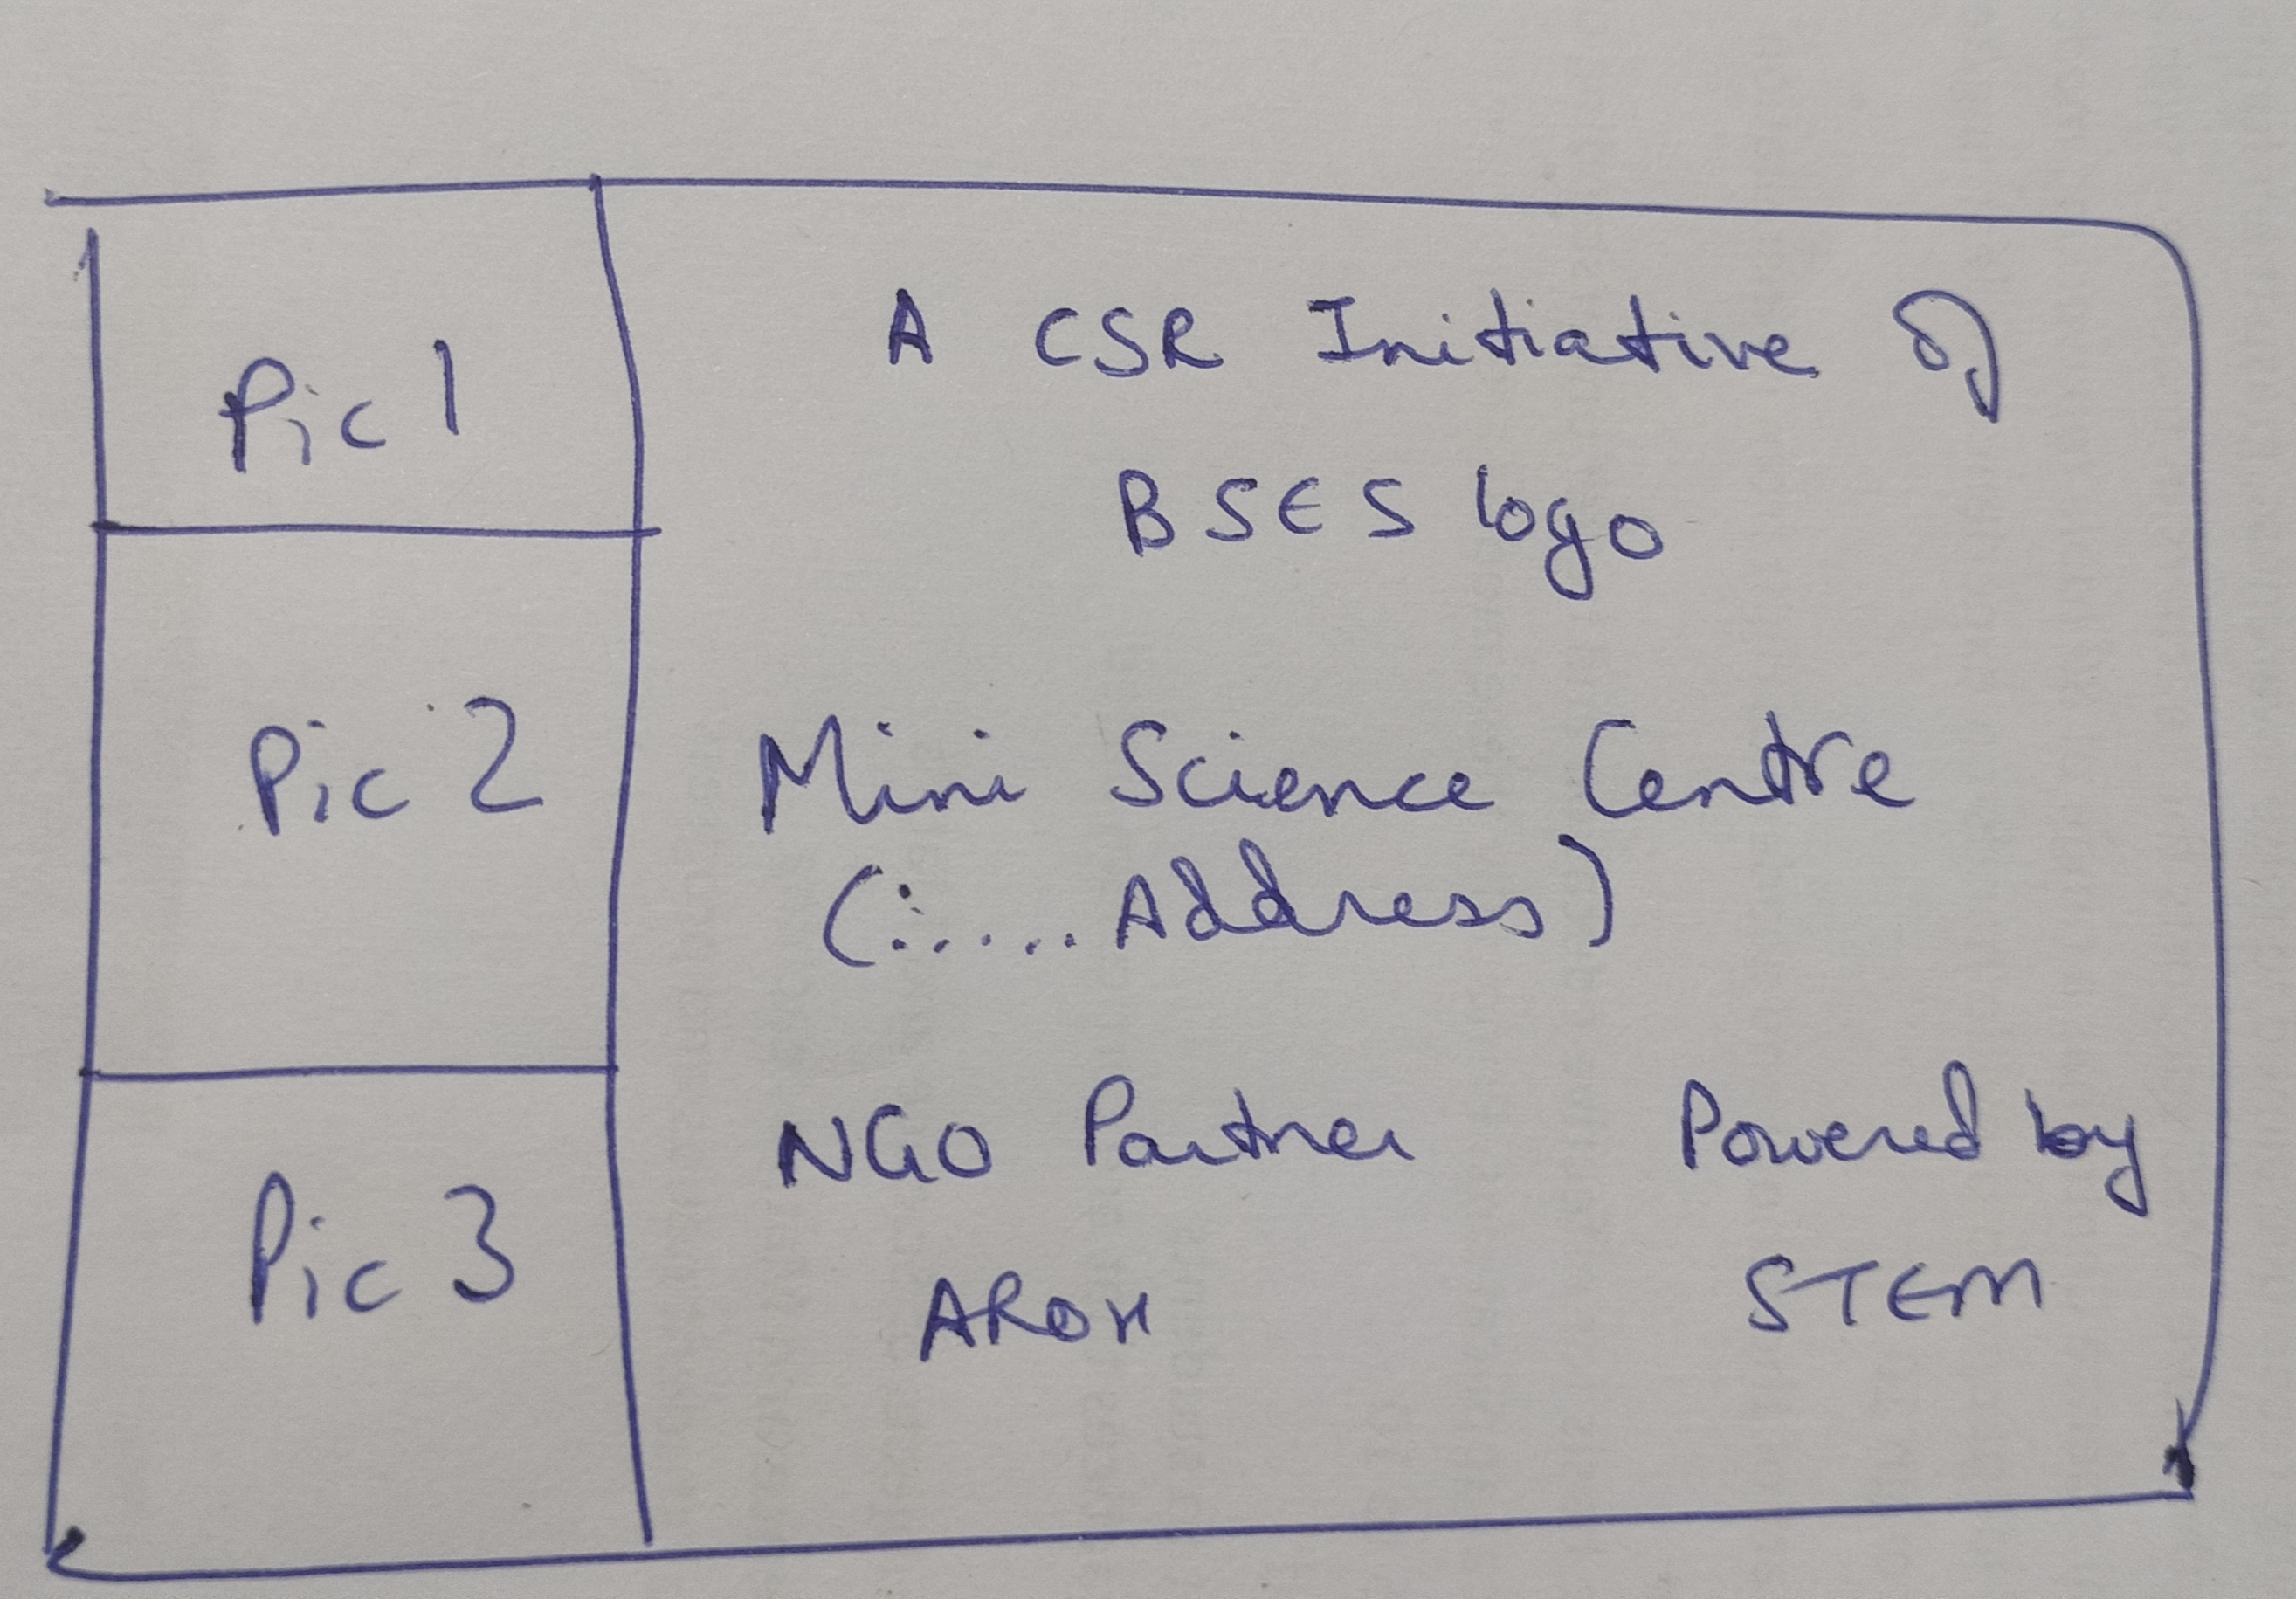 Pic 1
Pic 2
Pic 3
A CSR Initiative of
BSES logo
Mini Science Centre
(:..... Address)
NGO Partner
AROH
Powered by
STEM